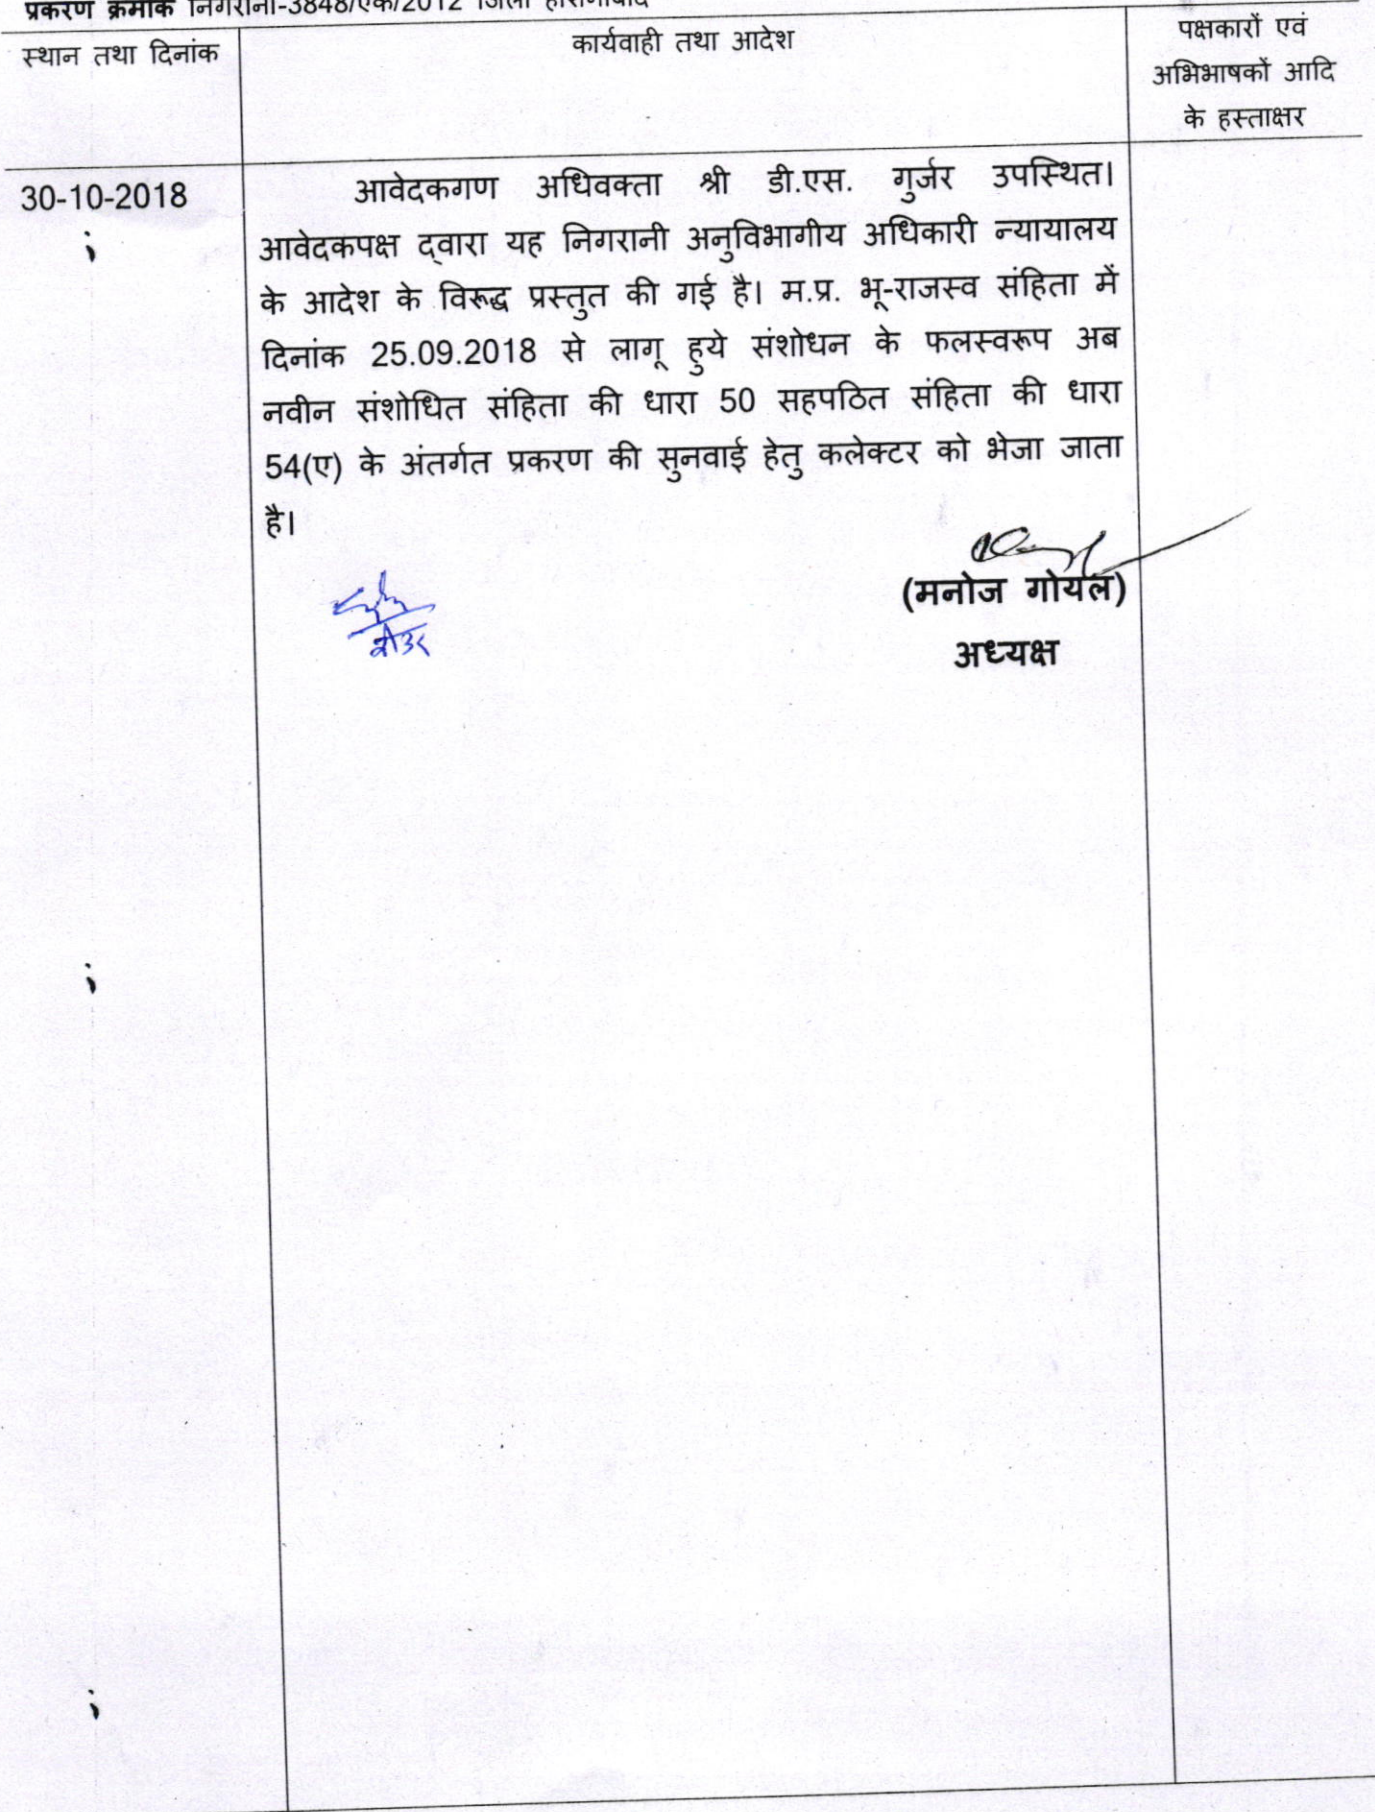 प्रकरण क्रमांक निगरानी-3848/एक/2012 जिला होशंगाबाद
स्थान तथा दिनांक
कार्यवाही तथा आदेश
पक्षकारों एवं
अभिभाषकों आदि
के हस्ताक्षर
30-10-2018
आवेदकगण अधिवक्ता श्री डी.एस. गुर्जर उपस्थित।
आवेदकपक्ष द्वारा यह निगरानी अनुविभागीय अधिकारी न्यायालय
के आदेश के विरूद्ध प्रस्तुत की गई है। म.प्र. भू-राजस्व संहिता में
दिनांक 25.09.2018 से लागू हुये संशोधन के फलस्वरूप अब
नवीन संशोधित संहिता की धारा 50 सहपठित संहिता की धारा
54(ए) के अंतर्गत प्रकरण की सुनवाई हेतु कलेक्टर को भेजा जाता
है।
(मनोज गोयल)
अध्यक्ष